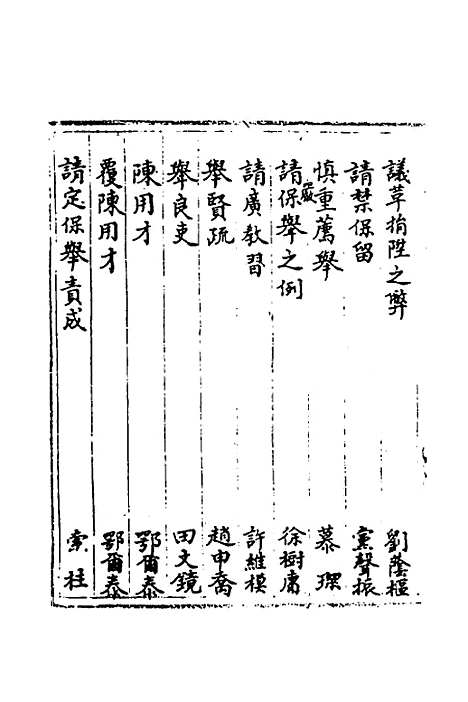 議革捐陞之弊　劉蔭樞
請禁保留　党聲振
慎重薦舉　慕琛
請嚴保舉之例　徐樹庸
請廣教習　許維模
舉賢疏　趙申喬
舉良吏　田文鏡
陳用才　鄂爾泰
覆陳用才　鄂爾泰
請定保舉責成　索柱